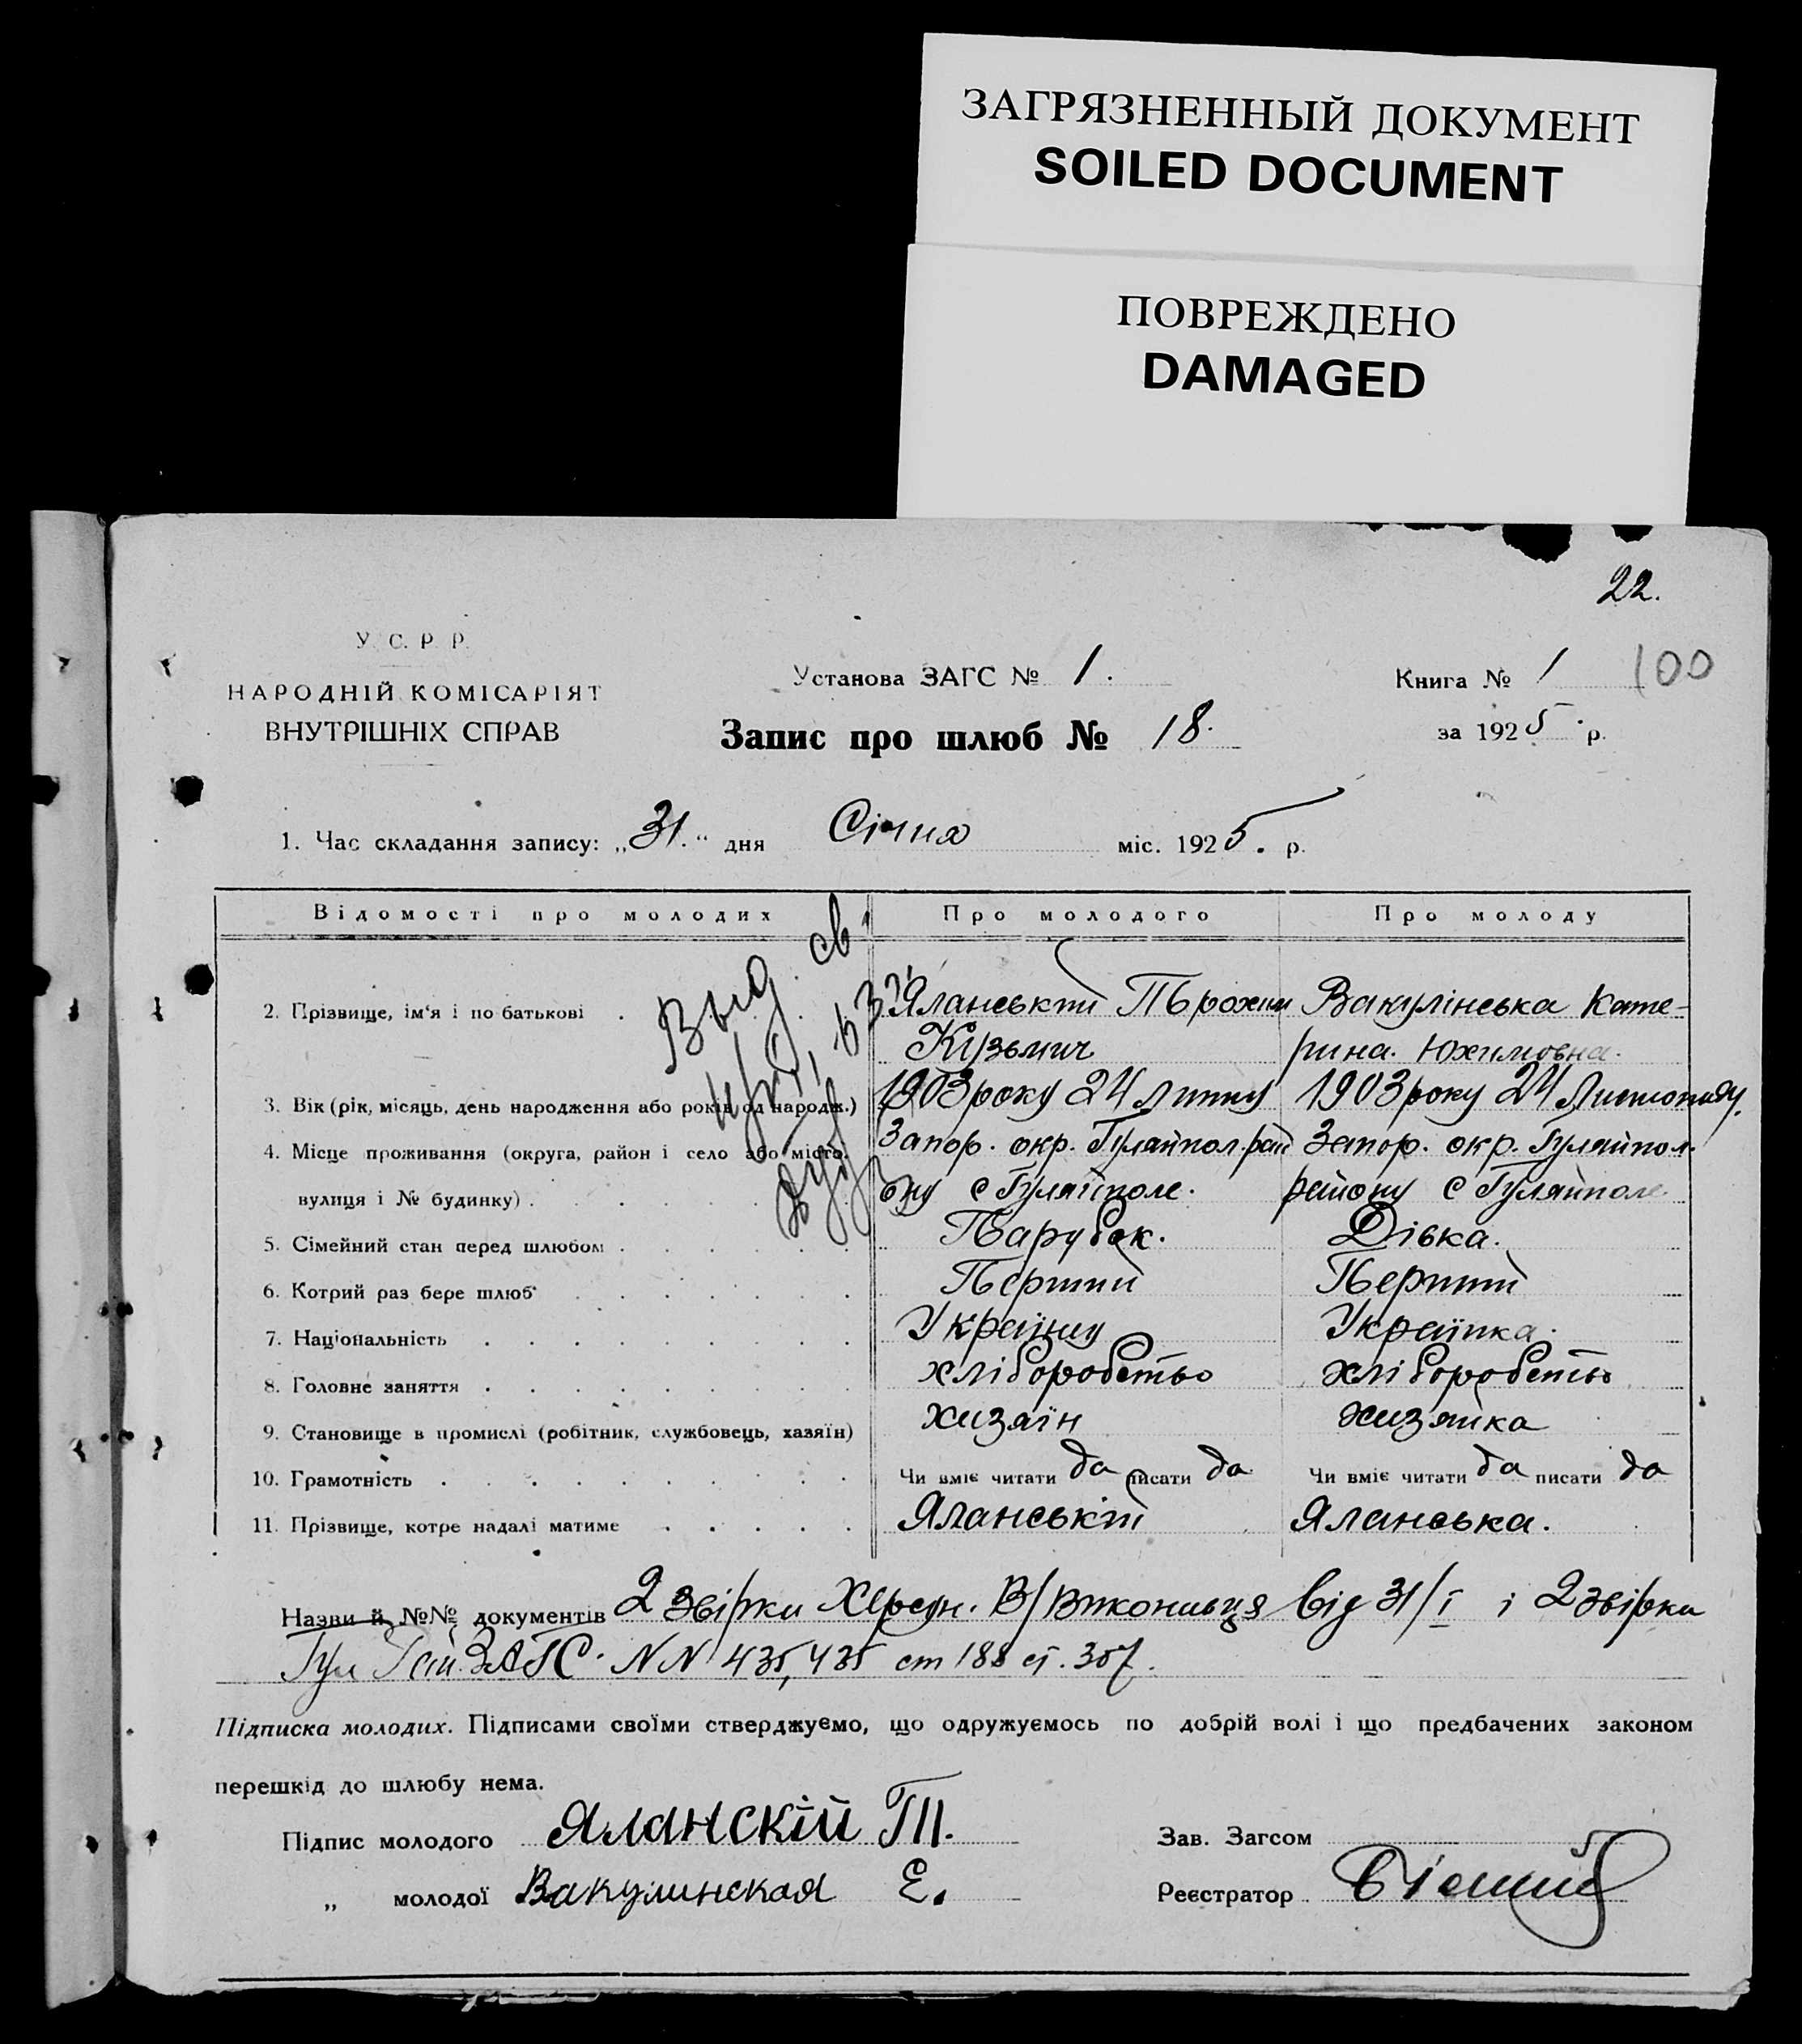 ЗАГРЯЗНЕННЫЙ ДОКУМЕНТ
SOILED DOCUMENT
ПОВРЕЖДЕНО
DAMAGED
22.
У. С. Р. Р.
НАРОДНІЙ КОМІСАРІЯТ
ВНУТРІШНІХ СПРАВ
Установа ЗАГС № 1.
Запис про шлюб № 18.
Книга № 1 100
за 1925 р.
1. Час складання запису: „31.“ дня Січня міс. 1925. р.
Відомості про молодих Про молодого Про молоду
Выд. св.
2. Прізвище, ім‘я і по батькові . Яланський Трохим Вакулінська Кате-
Кузьмич рина Юхимовна.
3. Вік (рік, місяць, день народження або років од народж.) 1903 року 24 Липну 1903 року 24 Листопаду.
4. Місце проживання (округа, район і село або місто, Запор. окр. Гуляйпол. рай Запор. окр. Гуляйпол.
вулиця і № будинку) . ону с Гуляйполе. району с Гуляйполе.
5. Сімейний стан перед шлюбом . Парубок. Дівка.
6. Котрий раз бере шлюб Перший Перший
7. Національність Українц Українка.
8. Головне заняття хліборобство хліборобство
9. Становище в промислі (робітник, службовець, хазяїн) хазяїн хазяйка
10. Грамотність Чи вміє читати да писати да Чи вміє читати да писати да
11. Прізвище, котре надалі матиме Яланській Яланська.
Назви й №№ документів 2 звірки Херсон. В/Виконавця від 31/I і 2 звірки
ЗАГС. NN 435, 435 ст 188 ст. 357.
Підписка молодих. Підписами своїми стверджуємо, що одружуємось по добрій волі і що предбачених законом
перешкід до шлюбу нема.
Підпис молодого Яланскій Т.
Зав. Загсом
„ молодої Вакулинская Е.
Реєстратор